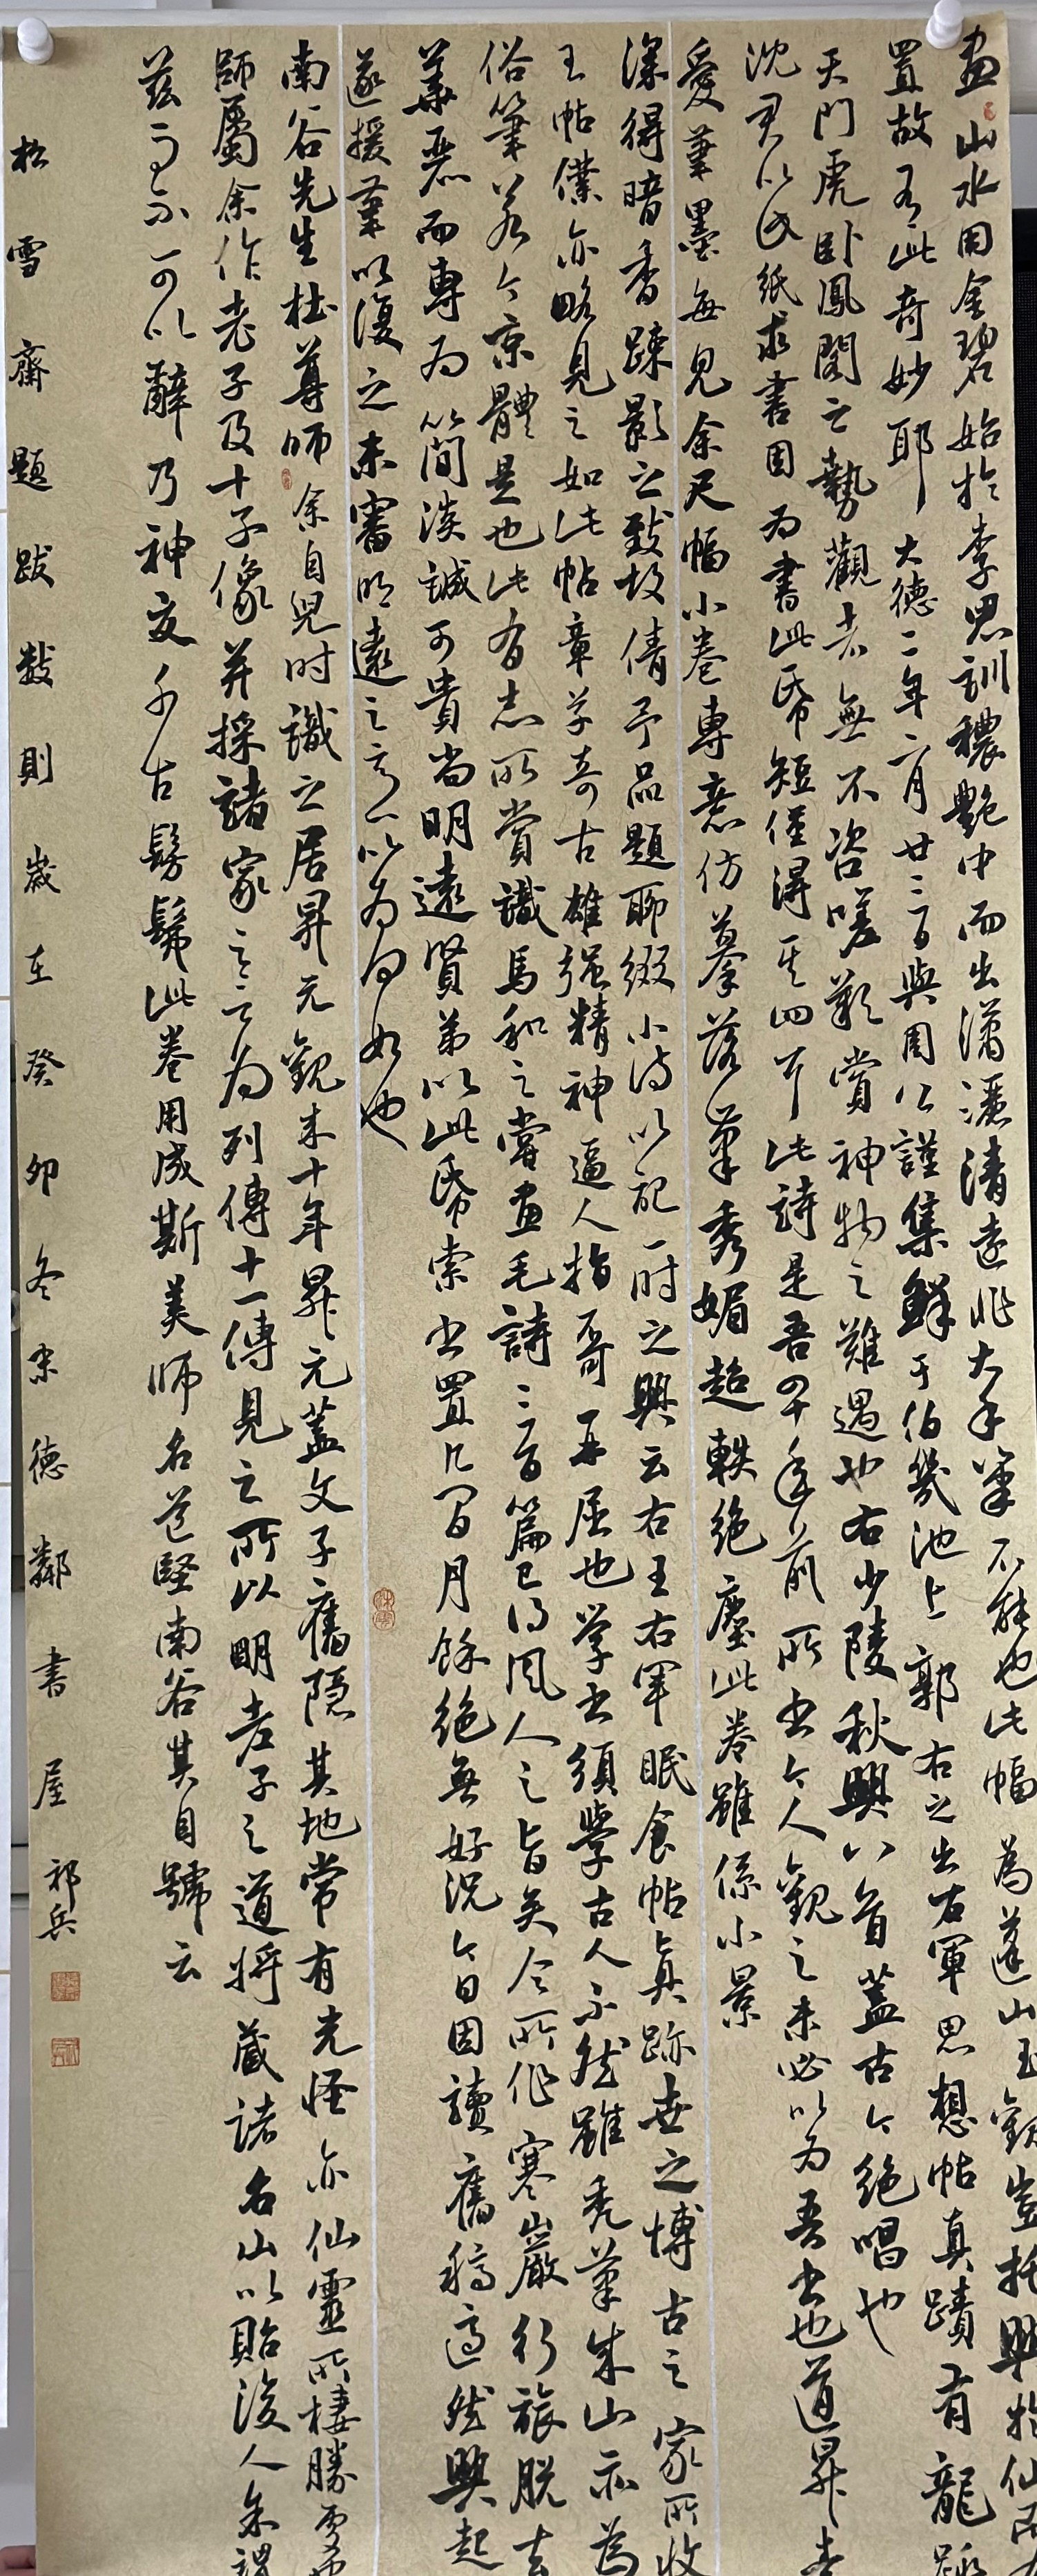 畫山水用金碧始於李思訓穠艷中而出瀟灑清遠非大手筆不能也此幅為蓬山玉觀豈托興於仙
置故有此奇妙耶大德二年二月廿三日與周公謹集鮮于伯幾池上郭右之出右軍思想帖真蹟有龍
天門虎卧鳳閣之勢觀者無不咨嗟歎賞神物之難遇也右少陵秋興八首蓋古今絕唱也
沈君以此紙求書因為書此紙短僅得其四耳此詩是吾四十年前所書今人觀之未必以為吾書也道昇
愛筆墨每見余尺幅小卷專意仿摹落筆秀媚超軼絕塵此卷雖係小景
深得暗香疎影之致故倩予品題聊綴小詩以記一時之興云右王右軍眠食帖真跡世之博古之家所收
王帖僕亦略見之如此帖章草奇古雄強精神逼人指不再屈也學書須學古人不然雖禿筆成山亦為
俗筆若今京體是也此有志所賞識馬和之嘗畫毛詩三百篇已得風人之旨矣今所作寒巖行旅脫去
華惡而專為簡淡誠可貴尚明遠賢弟以此紙索書置几閒月餘絕無好況今日因讀舊稿適然興起
遂援筆以復之未審明遠之意以為何如也
南谷先生杜尊師余自兒時識之居昇元觀未十年昇元蓋文子舊隱其地常有光怪亦仙靈所棲勝
師屬余作老子及十子像并採諸家之言為列傳十一傳見之所以明老子之道將藏諸名山以貽後人余謂
茲事不可以辭乃神交千古髣髴此卷用成斯美師名道堅南谷其自號云
松雪齋題跋數則歲在癸卯冬末德鄰書屋祁兵